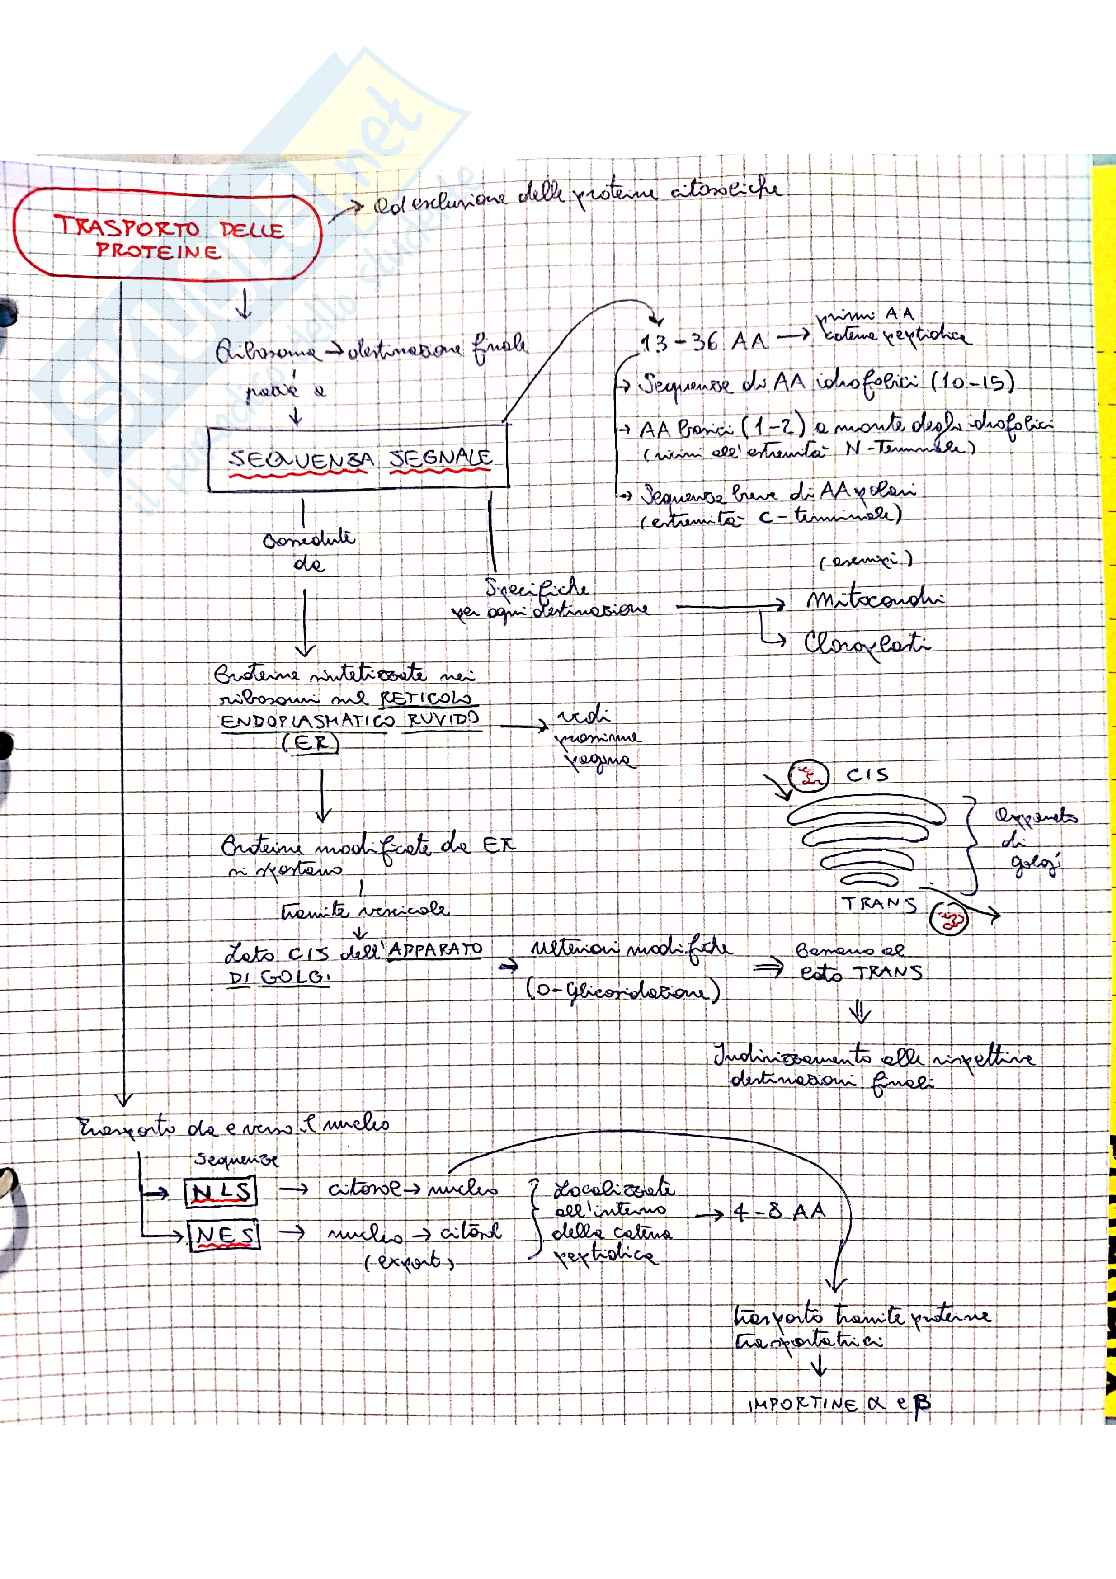 TRASPORTO DELLE
PROTEINE
ad esclusione delle proteine citosoliche
Ribosoma → destinazione finale
13-36 AA → primi AA
catena peptidica
Sequenze di AA idrofobici (10-15)
AA basici (1-2) a monte degli idrofobici
(vicini all'estremità N-Terminale)
Sequenza breve di AA polari
(estremità C-terminale)
SEQUENZA SEGNALE
possedute
da
Specifiche
per ogni destinazione
(esempi)
Mitocondri
Cloroplasti
Proteine sintetizzate nei
ribosomi sul RETICOLO
ENDOPLASMATICO RUVIDO
(ER)
vedi
prossima
pagina
Proteine modificate da ER
si spostano
tramite vescicole
Lato CIS dell'APPARATO
DI GOLGI
Ulteriori modifiche
(O-Glicosidazione)
lato TRANS
CIS
Apparato
di
golgi
TRANS
Indirizzamento alle rispettive
destinazioni finali
Trasporto da e verso il nucleo
Sequenze
NLS → citosol → nucleo
NES → nucleo → citosol
(export)
Localizzate
all'interno
della catena
peptidica
→ 4-8 AA
trasporto tramite proteine
trasportatrici
IMPORTINE α e β